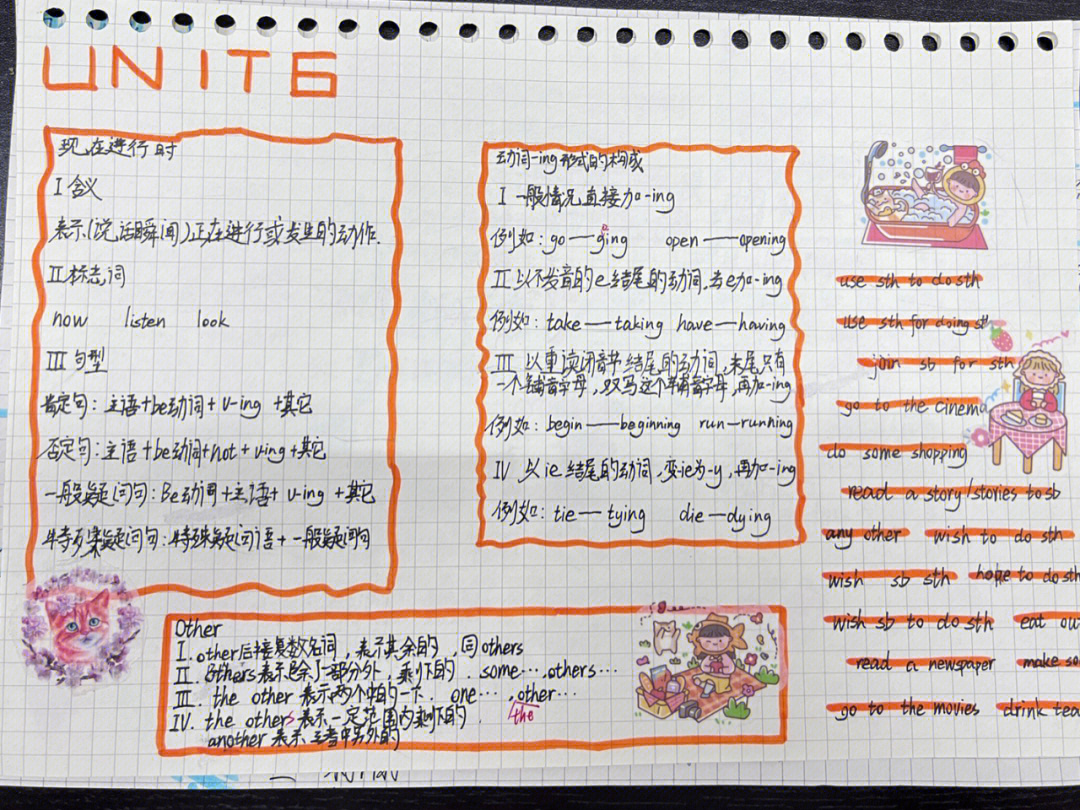 UNIT6
现在进行时
I 含义
表示(说话瞬间)正在进行或发生的动作.
II 标志词
now listen look
III 句型
肯定句: 主语+be动词+v-ing +其它
否定句: 主语+be动词+not+ving+其它
一般疑问句: Be动词+主语+v-ing +其它
特殊疑问句: 特殊疑问语+一般疑问句
动词-ing形式的构成
I 一般情况直接加-ing
例如: go——going open——opening
II 以不发音的e结尾的动词,去e加-ing
例如: take——taking have—having
III 以重读闭音节结尾的动词,末尾只有
一个辅音字母,双写这个辅音字母,再加-ing
例如: begin——beginning run—running
IV 以ie结尾的动词,变ie为-y,再加-ing
例如: tie—tying die—dying
Other
I. other后接复数名词,表示其余的,同others
II. others表示除了一部分外,剩下的. some…,others…
III. the other 表示两个中的一下. one…,the other…
IV. the others表示一定范围内剩下的.
another 表示三者中另外的
use sth to do sth
use sth for doing sth
join sb for sth
go to the cinema
do some shopping
read a story/stories to sb
any other wish to do sth
wish sb sth hope to do sth
wish sb to do sth eat ou
read a newspaper make so
go to the movies drink tea